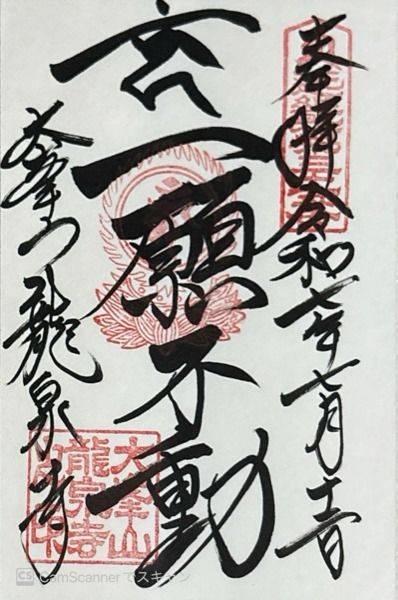 奉拝 令和七年七月十一日
言一願不動
大峯山龍泉寺
大峯山
龍泉寺
印
CS CamScanner でスキャン